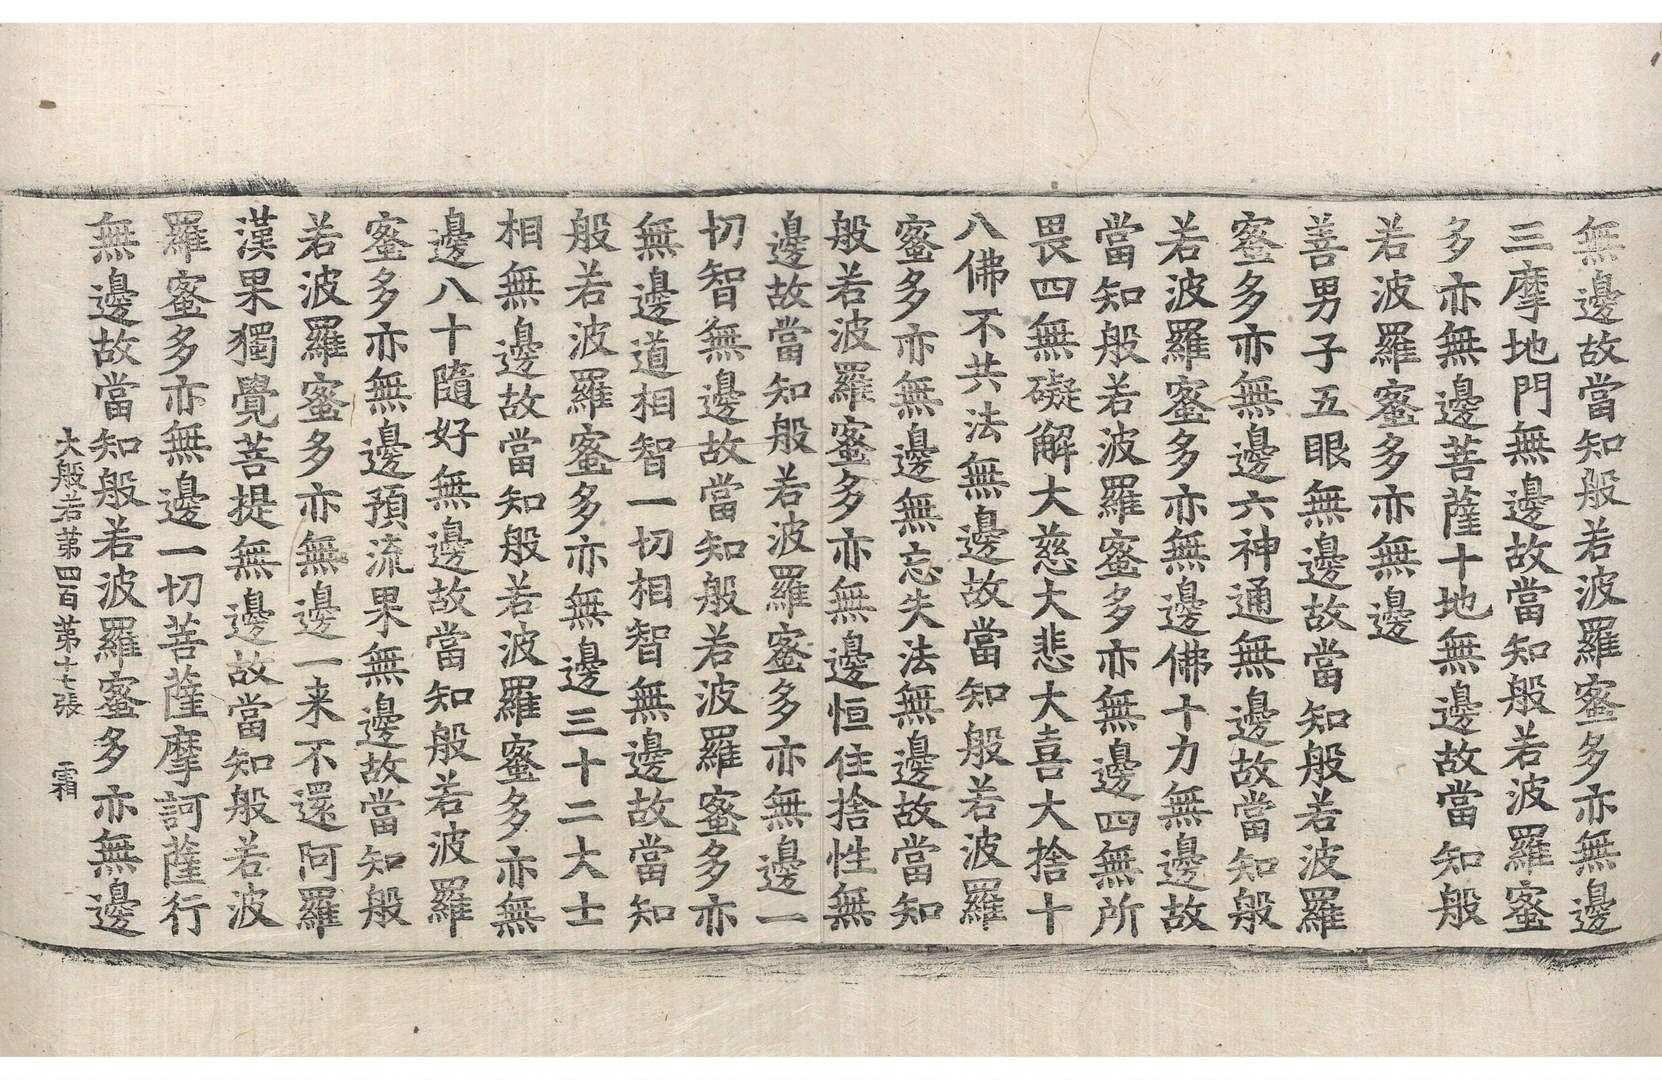 無邊故當知般若波羅蜜多亦無邊
三摩地門無邊故當知般若波羅蜜
多亦無邊菩薩十地無邊故當知般
若波羅蜜多亦無邊
善男子五眼無邊故當知般若波羅
蜜多亦無邊六神通無邊故當知般
若波羅蜜多亦無邊佛十力無邊故
當知般若波羅蜜多亦無邊四無所
畏四無礙解大慈大悲大喜大捨十
八佛不共法無邊故當知般若波羅
蜜多亦無邊無忘失法無邊故當知
般若波羅蜜多亦無邊恒住捨性無
邊故當知般若波羅蜜多亦無邊一
切智無邊故當知般若波羅蜜多亦
無邊道相智一切相智無邊故當知
般若波羅蜜多亦無邊三十二大士
相無邊故當知般若波羅蜜多亦無
邊八十隨好無邊故當知般若波羅
蜜多亦無邊預流果無邊故當知般
若波羅蜜多亦無邊一来不還阿羅
漢果獨覺菩提無邊故當知般若波
羅蜜多亦無邊一切菩薩摩訶薩行
無邊故當知般若波羅蜜多亦無邊
大般若第四百 第十七張 霜